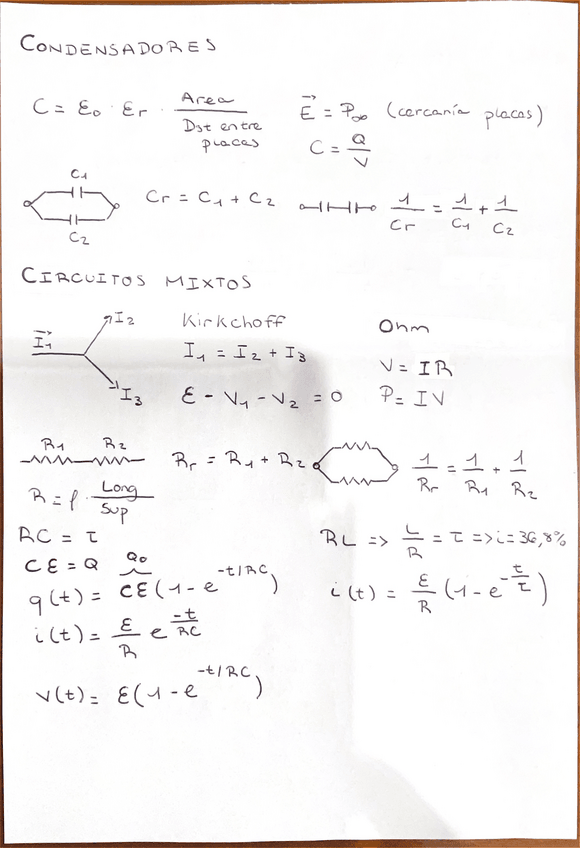 CONDENSADORES
C = ε₀ · εr · Area / Dst entre placas
E⃗ = P∞ (cercanía placas)
C = Q/V
C1
C2
Cr = C1 + C2
1/Cr = 1/C1 + 1/C2
CIRCUITOS MIXTOS
I⃗1
I2
I3
Kirkchoff
I1 = I2 + I3
ε - V1 - V2 = 0
Ohm
V = IR
P = IV
R1 R2
Rr = R1 + R2
1/Rr = 1/R1 + 1/R2
R = ρ · Long/Sup
RC = τ
CE = Q Q0
q(t) = CE(1 - e^-t/RC)
i(t) = ε/R e^-t/RC
v(t) = ε(1 - e^-t/RC)
RL => L/R = τ => i = 36,8%
i(t) = ε/R (1 - e^-t/τ)